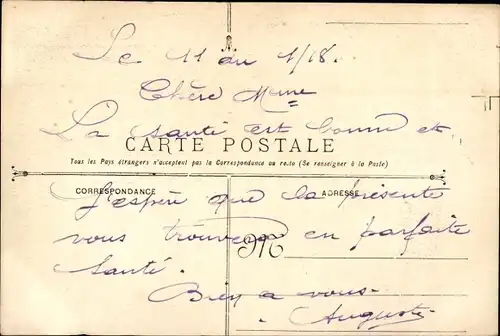 Le 11 du 1/18.
Chère Mme
La santé est bonne et
CARTE POSTALE
Tous les Pays étrangers n'acceptent pas la Correspondance au recto (Se renseigner à la Poste)
CORRESPONDANCE
ADRESSE
J'espère que la présente
vous trouvera en parfaite
M
Santé.
Bien a vous
Auguste